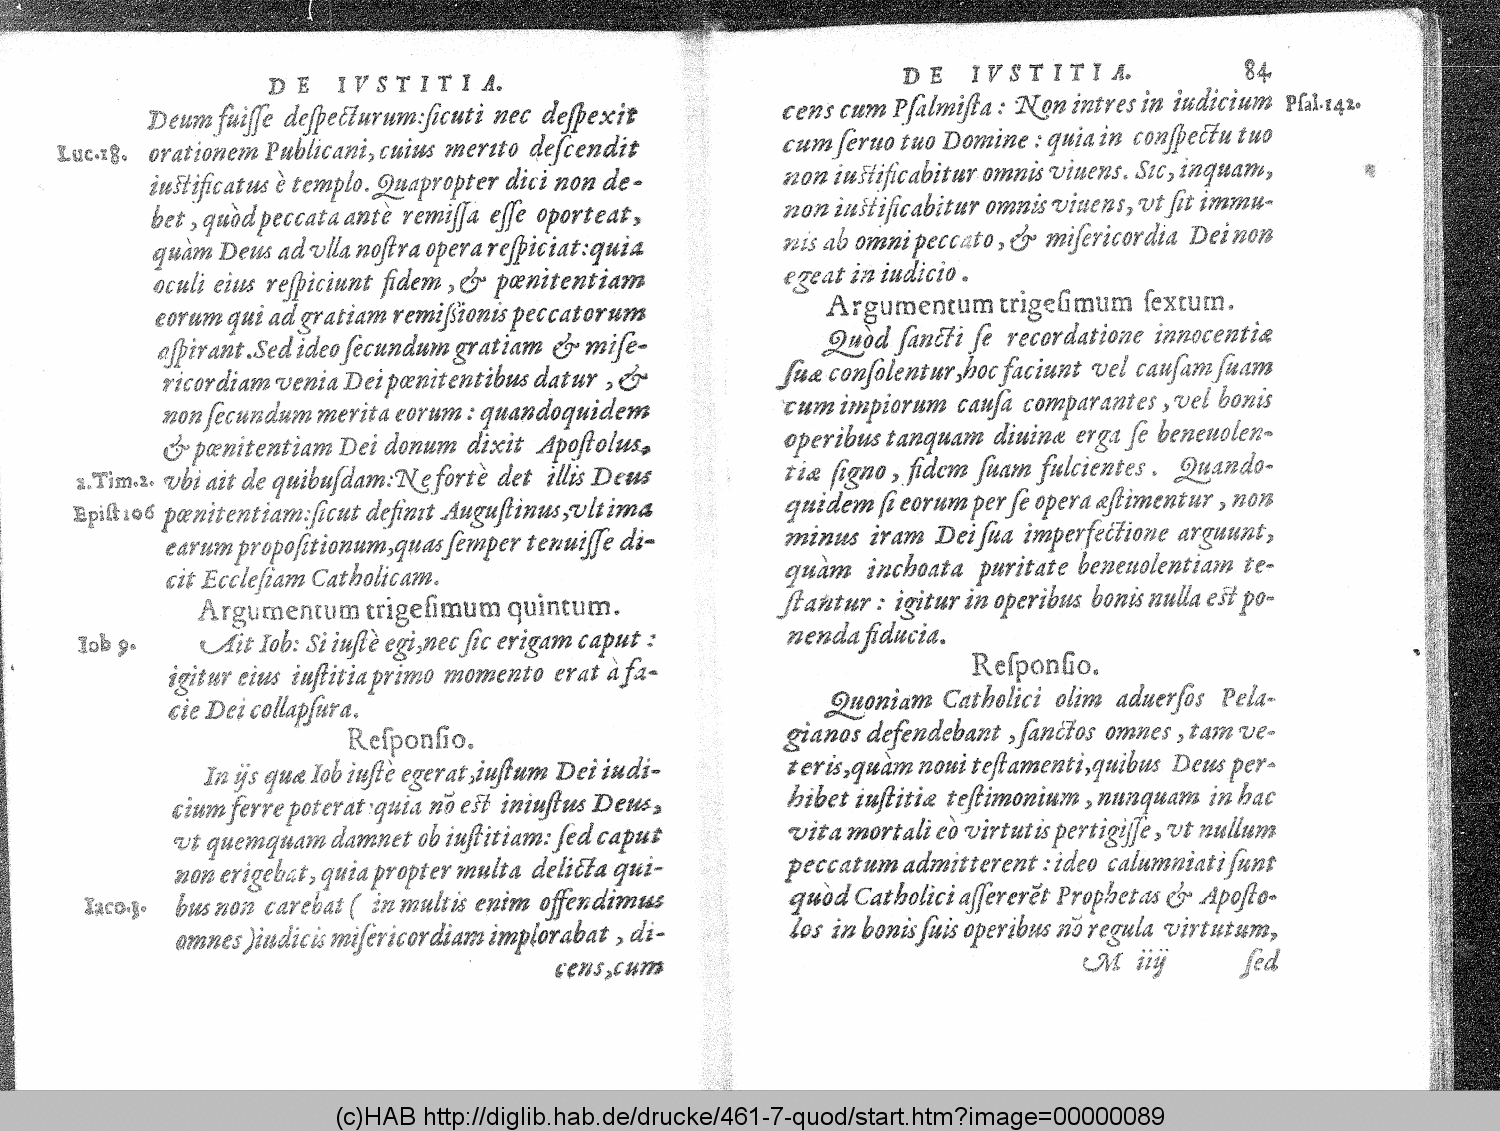 DE IVSTITIA.
Deum fuiſſe deſpecturum:ſicuti nec deſpexit
Luc.18. orationem Publicani, cuius merito deſcendit
iuſtificatus è templo. Quapropter dici non de-
bet, quòd peccata antè remiſſa eſſe oporteat,
quàm Deus ad vlla noſtra opera reſpiciat:quia
oculi eius reſpiciunt fidem, & pœnitentiam
eorum qui ad gratiam remiſsionis peccatorum
aſpirant. Sed ideo ſecundum gratiam & miſe-
ricordiam venia Dei pœnitentibus datur, &
non ſecundum merita eorum: quandoquidem
& pœnitentiam Dei donum dixit Apoſtolus,
2.Tim.2. vbi ait de quibuſdam: Ne fortè det illis Deus
Epiſt 106 pœnitentiam:ſicut definit Auguſtinus,vltima
earum propoſitionum,quas ſemper tenuiſſe di-
cit Eccleſiam Catholicam.
Argumentum trigeſimum quintum.
Iob 9. Ait Iob: Si iuſtè egi,nec ſic erigam caput:
igitur eius iuſtitia primo momento erat à fa-
cie Dei collapſura.
Reſponſio.
In ijs quæ Iob iuſtè egerat,iuſtum Dei iudi-
cium ferre poterat:quia nõ eſt iniuſtus Deus,
vt quemquam damnet ob iuſtitiam: ſed caput
non erigebat, quia propter multa delicta qui-
Iaco.3. bus non carebat ( in multis enim offendimus
omnes )iudicis miſericordiam implorabat, di-
cens,cum
DE IVSTITIA. 84
cens cum Pſalmiſta: Non intres in iudicium Pſal.142.
cum ſeruo tuo Domine: quia in conſpectu tuo
non iuſtificabitur omnis viuens. Sic, inquam,
non iuſtificabitur omnis viuens, vt ſit immu-
nis ab omni peccato, & miſericordia Dei non
egeat in iudicio.
Argumentum trigeſimum ſextum.
Quòd ſancti ſe recordatione innocentiæ
ſuæ conſolentur,hoc faciunt vel cauſam ſuam
cum impiorum cauſa comparantes, vel bonis
operibus tanquam diuinæ erga ſe beneuolen-
tiæ ſigno, fidem ſuam fulcientes. Quando-
quidem ſi eorum per ſe opera æſtimentur, non
minus iram Dei ſua imperfectione arguunt,
quàm inchoata puritate beneuolentiam te-
ſtantur: igitur in operibus bonis nulla eſt po-
nenda fiducia.
Reſponſio.
Quoniam Catholici olim aduerſos Pela-
gianos defendebant, ſanctos omnes, tam ve-
teris,quàm noui teſtamenti,quibus Deus per-
hibet iuſtitiæ teſtimonium, nunquam in hac
vita mortali eò virtutis pertigiſſe, vt nullum
peccatum admitterent: ideo calumniati ſunt
quòd Catholici aſſererẽt Prophetas & Apoſto-
los in bonis ſuis operibus nõ regula virtutum,
M iiij ſed
(c)HAB http://diglib.hab.de/drucke/461-7-quod/start.htm?image=00000089